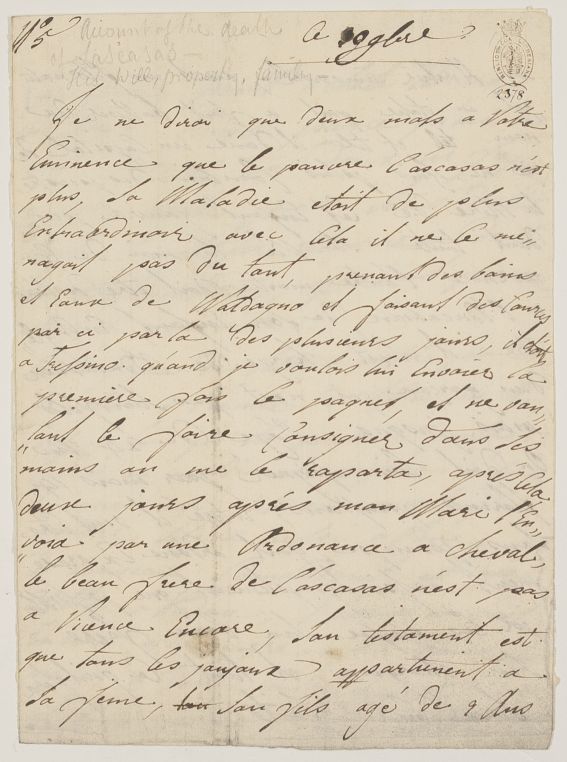 Account of the death
of Cascasas
his will, property, family
ce 9gbre
2378
Je ne dirai que deux mots a Votre
Eminence que le pauvre Cascasas n'est
plus, Sa Maladie etoit de plus
Extraordinair avec Cela il ne ce mé„
nagoit pas du tout, prenant des bains
et Eaux de Waldagno et faisant des Courses
par ci par la des plusieurs jours, il
a Fusino quand je voulois lui Envoier la
première fois le paquet, et ne vou„
„lant le faire Consigner dans les
mains on me le raporta, aprés Cela
deux jours aprés mon Mari l'En„
„voia par une Ordonance a cheval,
le beau frere de Cascasas n'est pas
a Vicence Encore, Son testament est
que tous les joujoux appartienent a
Sa féme, Son fils agé de 9 Ans